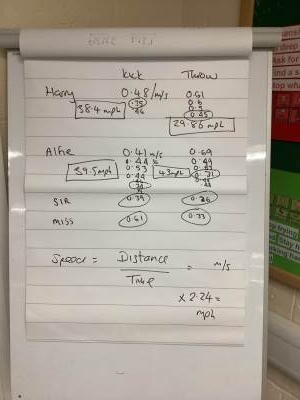 kick Throw
Harry 0.48 m/s 0.61
0.6
38.4 mph 0.5
0.45
29.86 mph
Alfie 0.41 m/s 0.69
0.44 0.49
39.5mph 0.53 43mph
0.44 0.31
SIR 0.39 0.36
MISS 0.61 0.33
Speed = Distance = m/s
Time
x 2.24 =
mph